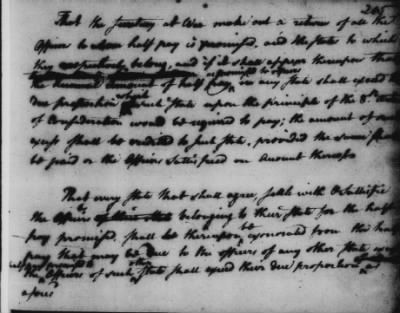 205
That the Secretary at War make out a return of all the
Officers to whom half pay is promised, and the State to which
they respectively belong, and if it shall appear thereupon that
the amount of half pay promised to officers in any State shall exceed the
due proportion which such State upon the principle of the 8th
of Confederation would be required to pay; the amount of such
excess shall be credited to such State, provided the same shall
be paid or the Officers satisfied on Account thereof
That every State that shall agree, settle with & satisfy
the Officers belonging to their State for the half
pay promised, shall be thereupon exonerated from the half
pay that may be due to the officers of any other State,
the Officers of such other State shall exceed their due proportion as
aforesd